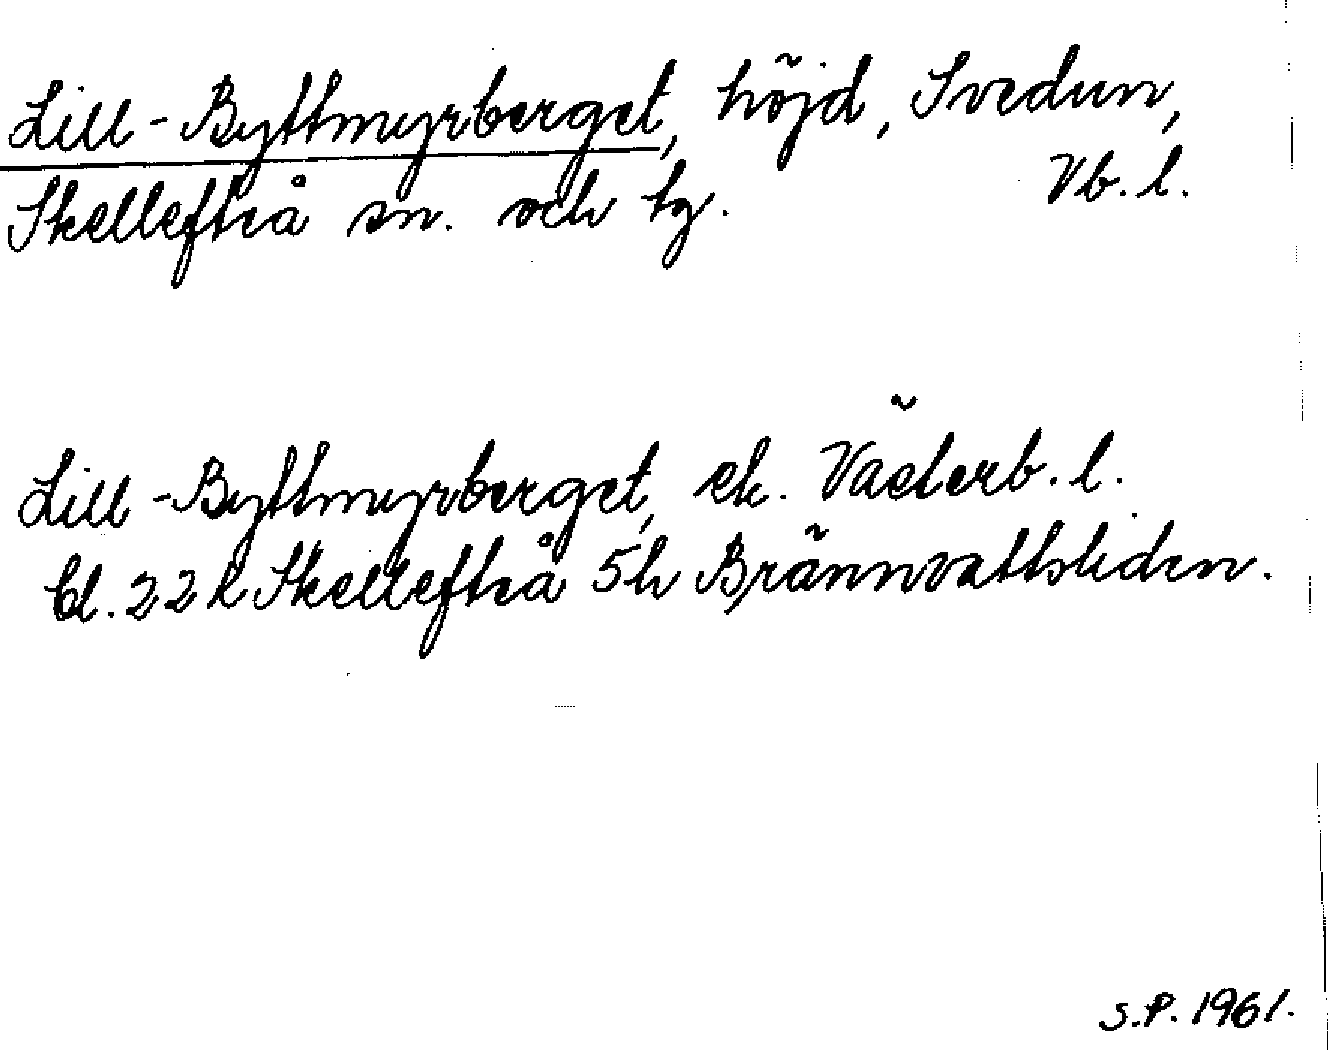 Lill-Byttmyrberget, höjd, Svedun,
Skellefteå sn. och tg. Vb. l.
Lill-Byttmyrberget, ek. Västerb. l.
bl. 22 k Skellefteå 5h Brännvattsliden.
S.P. 1961.